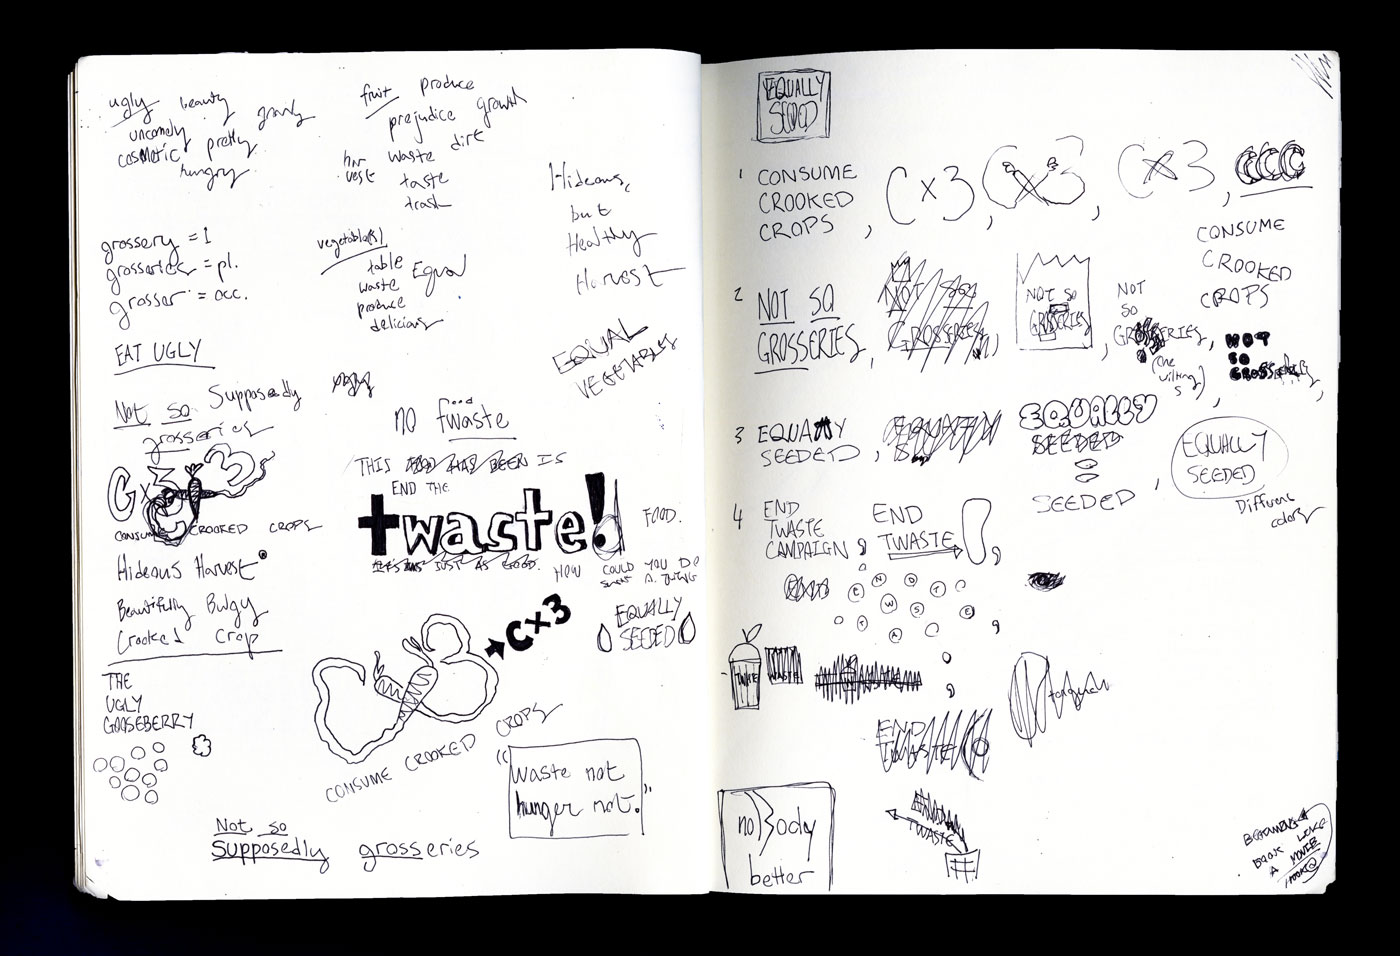 ugly beauty
uncomely gnarly
cosmetic pretty
hungry
fruit produce
prejudice growth
har vest waste dirt
taste
trash
Hideous,
but
Healthy
Harvest
grossery = 1
grosseries = pl.
grosser = occ.
vegetable(s)
table Equal
waste
produce
delicious
EAT UGLY
EQUAL
VEGETABLES
Not so Supposedly
grosseries
food
no fwaste
THIS IS
END THE
twaste!
FOOD.
IT'S JUST AS GOOD. HOW COULD YOU DO
SUCH A THING
C x 3
CONSUME CROOKED CROPS
Hideous Harvest
Beautifully Bulgy
Crooked Crop
EQUALLY
SEEDED
C x 3
THE
UGLY
GOOSEBERRY
CONSUME CROOKED CROPS
"Waste not
hunger not."
Not so
Supposedly grosseries
EQUALLY
SEEDED
1 CONSUME
CROOKED
CROPS, C x 3, C x 3, C x 3, CCC
CONSUME
CROOKED
CROPS
2 NOT SO
GROSSERIES,
NOT SO
GROSSERIES,
NOT SO
GROSSERIES,
NOT
SO
GROSSERIES,
(one
wilting
s)
NOT
SO
GROSSERIES,
3 EQUALLY
SEEDED,
EQUALLY
SEEDED
SEEDED,
EQUALLY
SEEDED
Different
colors
4 END
TWASTE
CAMPAIGN,
END
TWASTE
E N D T W A S T E
TWASTE
WASTE
END
TWASTE
no Body
better
TWASTE